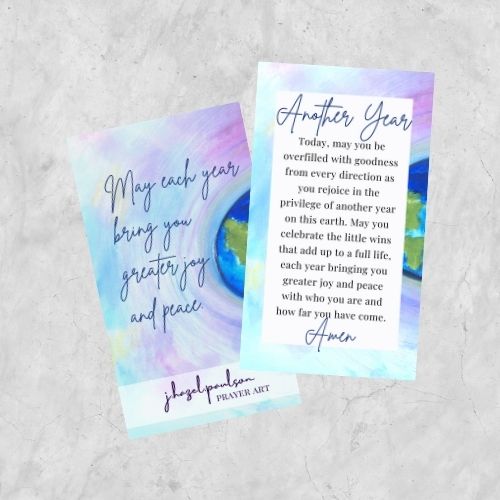 May each year
bring you
greater joy
and peace.
j.hazel.paulson
PRAYER ART
Another Year
Today, may you be
overfilled with goodness
from every direction as
you rejoice in the
privilege of another year
on this earth. May you
celebrate the little wins
that add up to a full life,
each year bringing you
greater joy and peace
with who you are and
how far you have come.
Amen